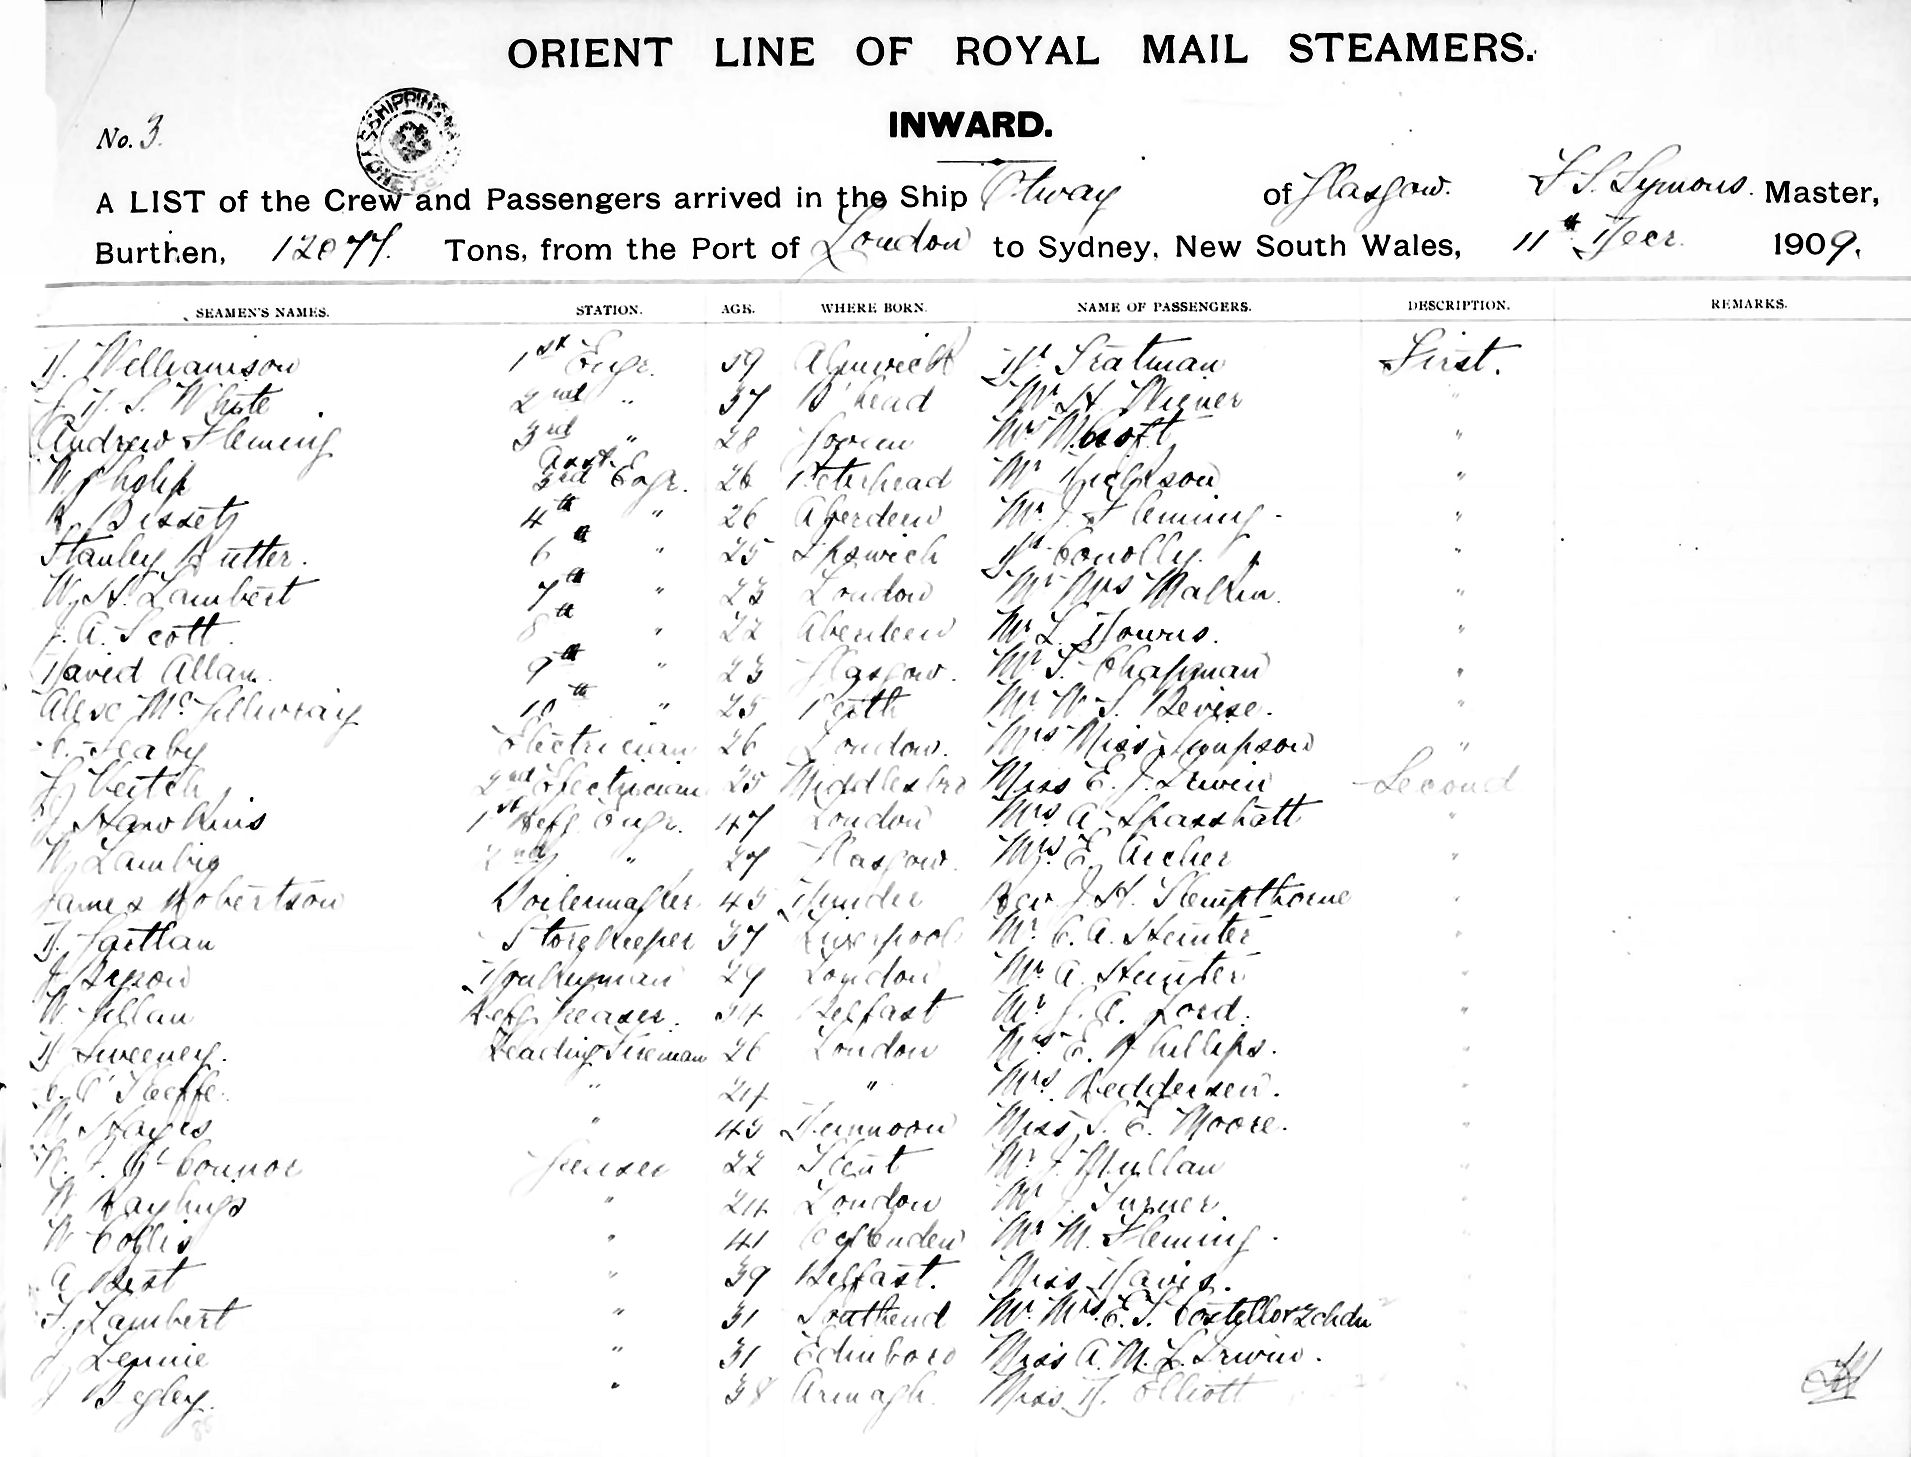 ORIENT LINE OF ROYAL MAIL STEAMERS.
INWARD.
No. 3.
A LIST of the Crew and Passengers arrived in the Ship Otway of Glasgow. Symons. Master,
Burthen, 12077. Tons, from the Port of London to Sydney, New South Wales, 11th Decr. 1909.
SEAMEN'S NAMES. STATION. AGE. WHERE BORN. NAME OF PASSENGERS. DESCRIPTION. REMARKS.
D. Williamson 1st Engr. 59 Alnwick Dr Tratman First.
White 2nd " 37 B'head Mr H. "
Andrew Fleming 3rd " 28 Govan "
W. Philip Asst 3rd Engr. 26 Peterhead Mr "
R. Bissett 4th " 26 Aberdeen Mr J. Fleming - "
Stanley Rutter. 6th " 25 Ipswich Dr Conolly. "
W. H. Lambert 7th " 23 London Mr Mrs Malkin. "
J. A. Scott 8th " 22 Aberdeen Mr L. Downs. "
David Allan 9th " 23 Glasgow. Mr T. Chapman "
Alexr McGillivray 10th " 25 Perth Mr W. S. "
Seaby Electrician 26 London. Mrs Miss Simpson "
Veitch 2nd Electrician 25 Middlesbro Miss E. J. Irwin Second
Hawkins 1st Refg. Engr. 47 London Mrs A. Spasshatt "
W. Lambie 2nd " 27 Glasgow. Mrs E. Archer "
James Robertson Boilermaker 45 Dundee Rev J. H. Kempthorne "
D. Gartlan Storekeeper 37 Liverpool Mr C. A. Hunter "
J. Bryson Donkeyman 29 London Mr A. Hunter "
W. Gillan Refg. Greaser. 34 Belfast Mr G. A. Lord. "
D. Sweeney. Leading Fireman 26 London Mrs E. Phillips. "
C. O'Keeffe. " 24 " Mrs Feddersen. "
M. Hayes " 43 Dunmoon Miss S. E. Moore. "
Connor Greaser 22 Kent Mr J. Mullan "
W. " 24 London Mr J. Turner "
W. Collis " 41 Mr M. Fleming. "
A. Best " 39 Belfast. Miss Davis.
Lambert " 31 Southend Mr Mrs E. T. Costello & 2 chdn
J. Lennie " 31 Edinboro Miss A. M. L. Irwin.
J. Begley. " 38 Armagh. Miss D. Elliott "